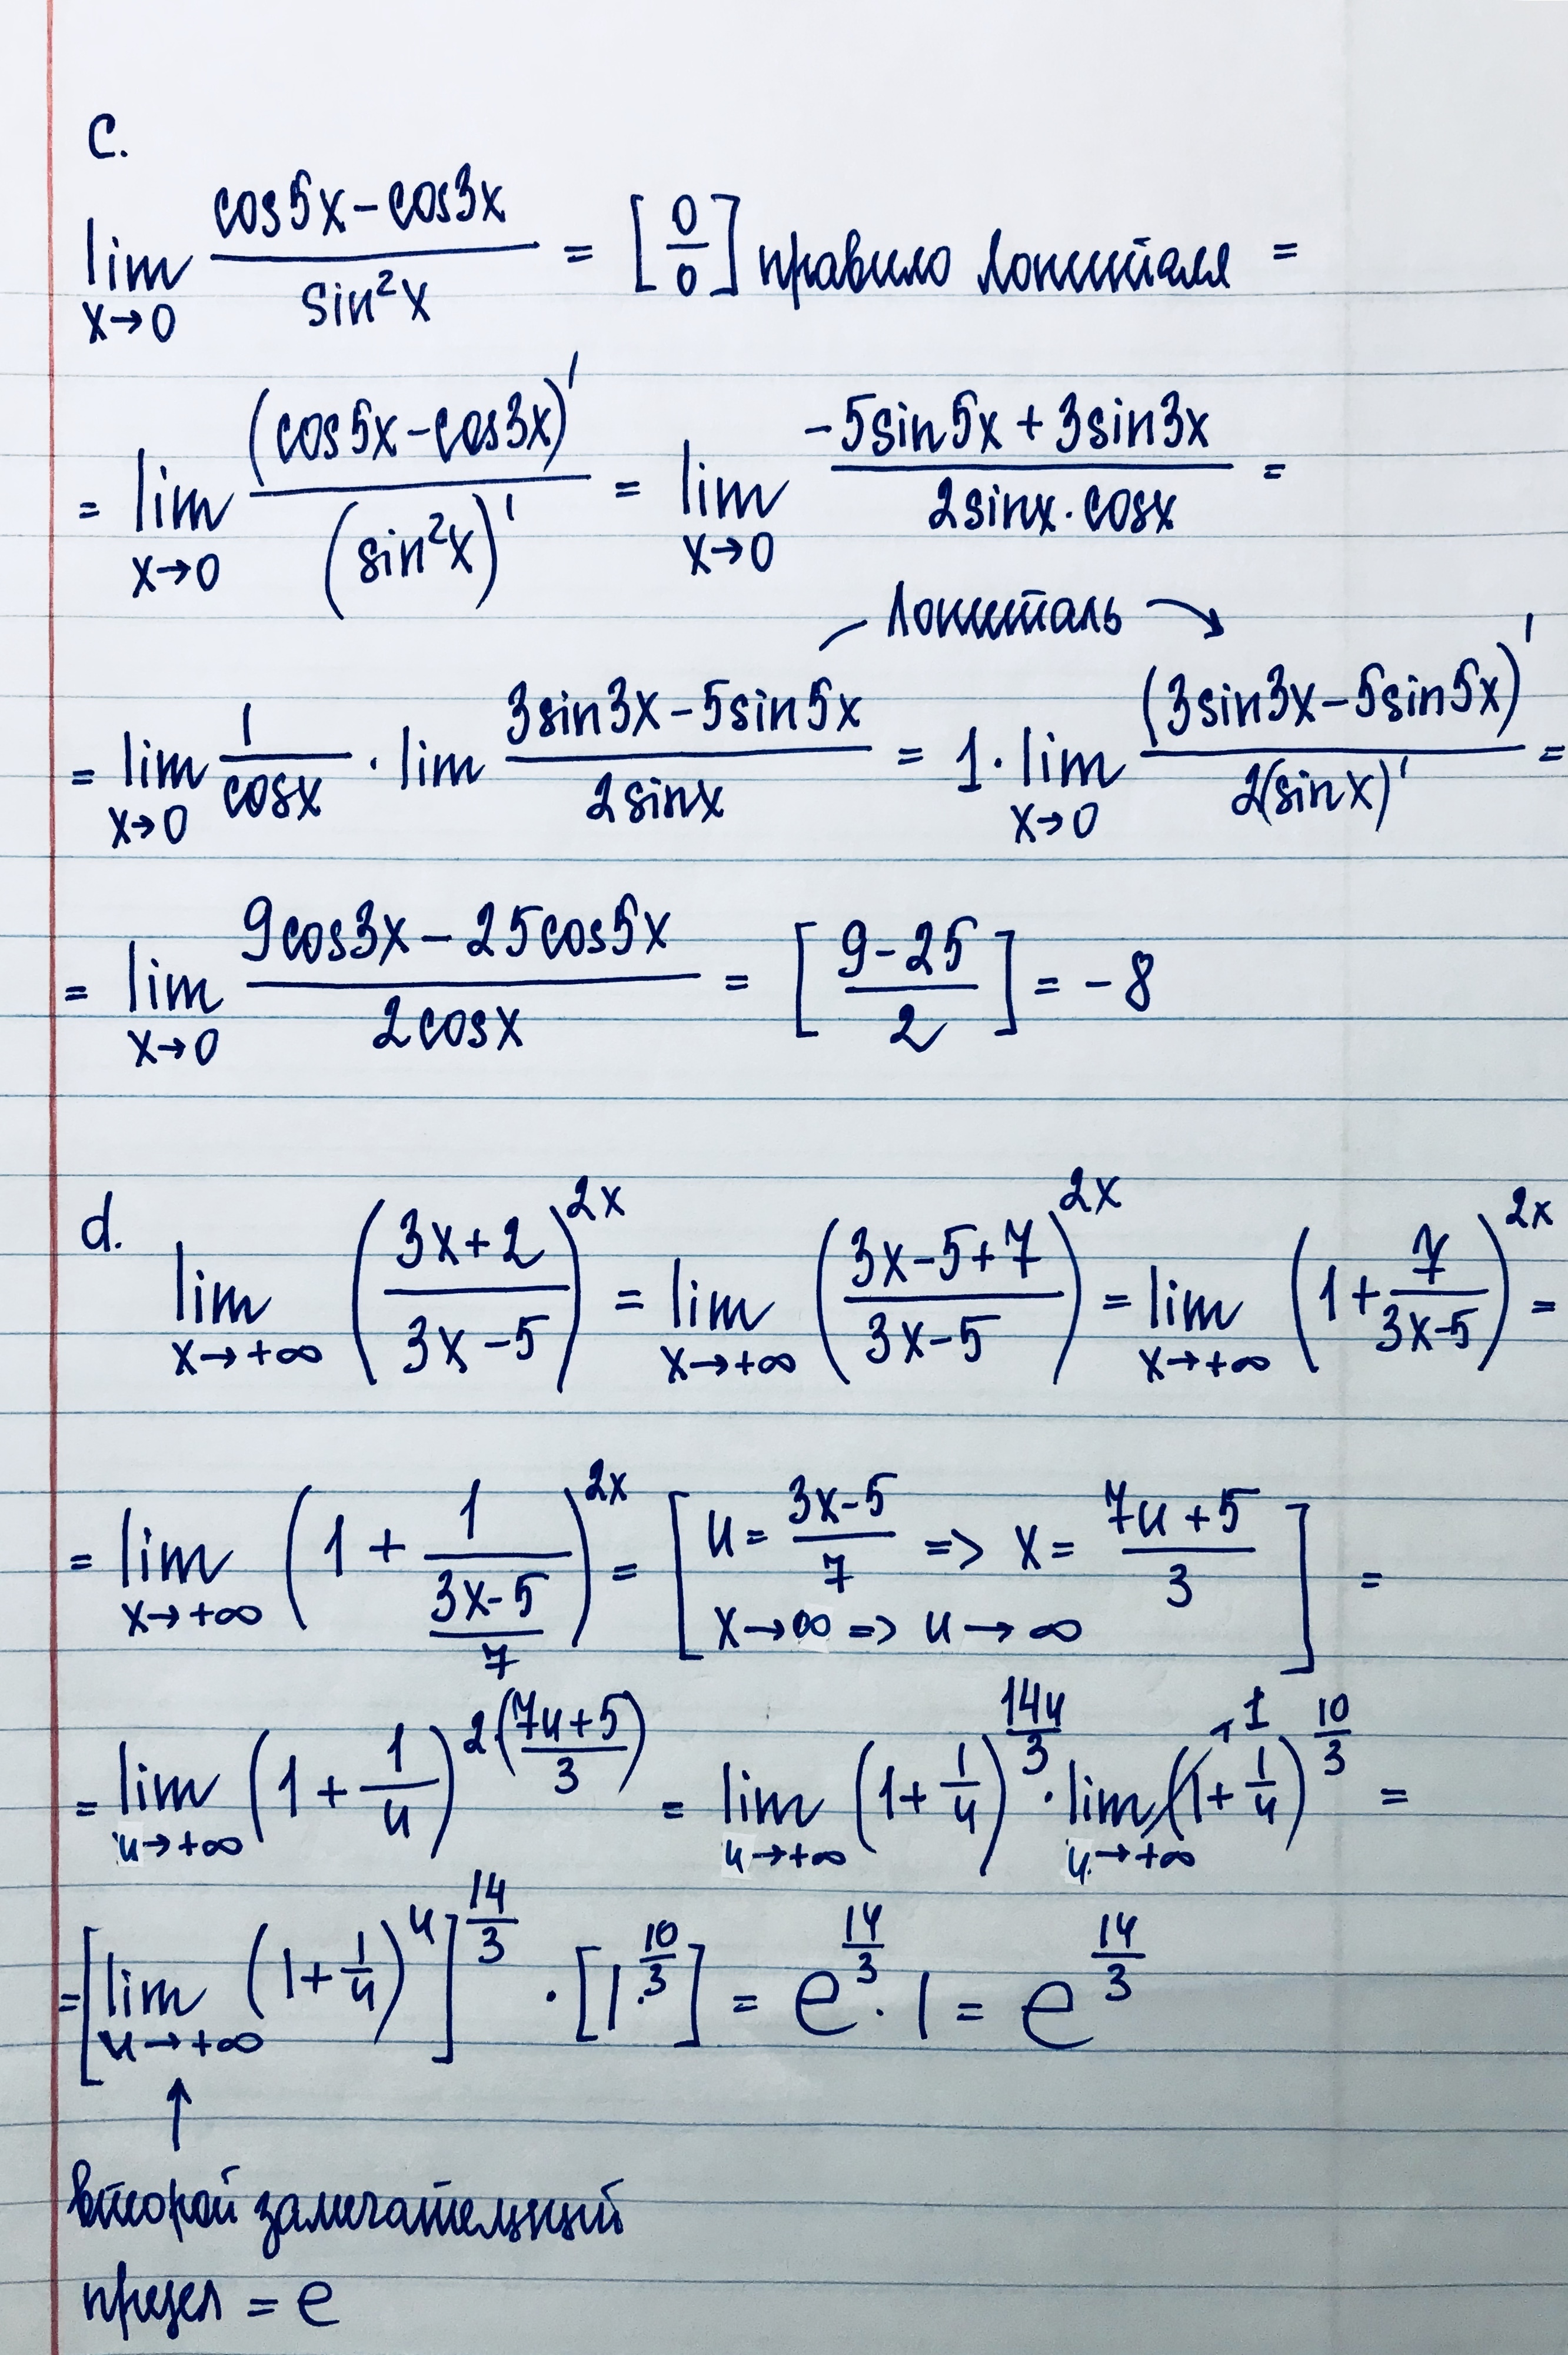 c.
lim x→0 (cos5x − cos3x)/(sin²x) = [0/0] правило Лопиталя =
= lim x→0 (cos5x − cos3x)′/(sin²x)′ = lim x→0 (−5sin5x + 3sin3x)/(2sinx · cosx) =
Лопиталь
= lim x→0 1/cosx · lim (3sin3x − 5sin5x)/(2sinx) = 1 · lim x→0 (3sin3x − 5sin5x)′/(2(sinx)′) =
= lim x→0 (9cos3x − 25cos5x)/(2cosx) = [(9−25)/2] = −8
d. lim x→+∞ ((3x+2)/(3x−5))^2x = lim x→+∞ ((3x−5+7)/(3x−5))^2x = lim x→+∞ (1 + 7/(3x−5))^2x =
= lim x→+∞ (1 + 1/((3x−5)/7))^2x = [u = (3x−5)/7 => x = (7u+5)/3
x→∞ => u→∞] =
= lim u→+∞ (1 + 1/u)^(2·((7u+5)/3)) = lim u→+∞ (1 + 1/u)^(14u/3) · lim u→+∞ (1 + 1/u)^(10/3) → 1 =
= [lim u→+∞ (1 + 1/u)^u]^(14/3) · [1^(10/3)] = e^(14/3) · 1 = e^(14/3)
↑
второй замечательный
предел = e